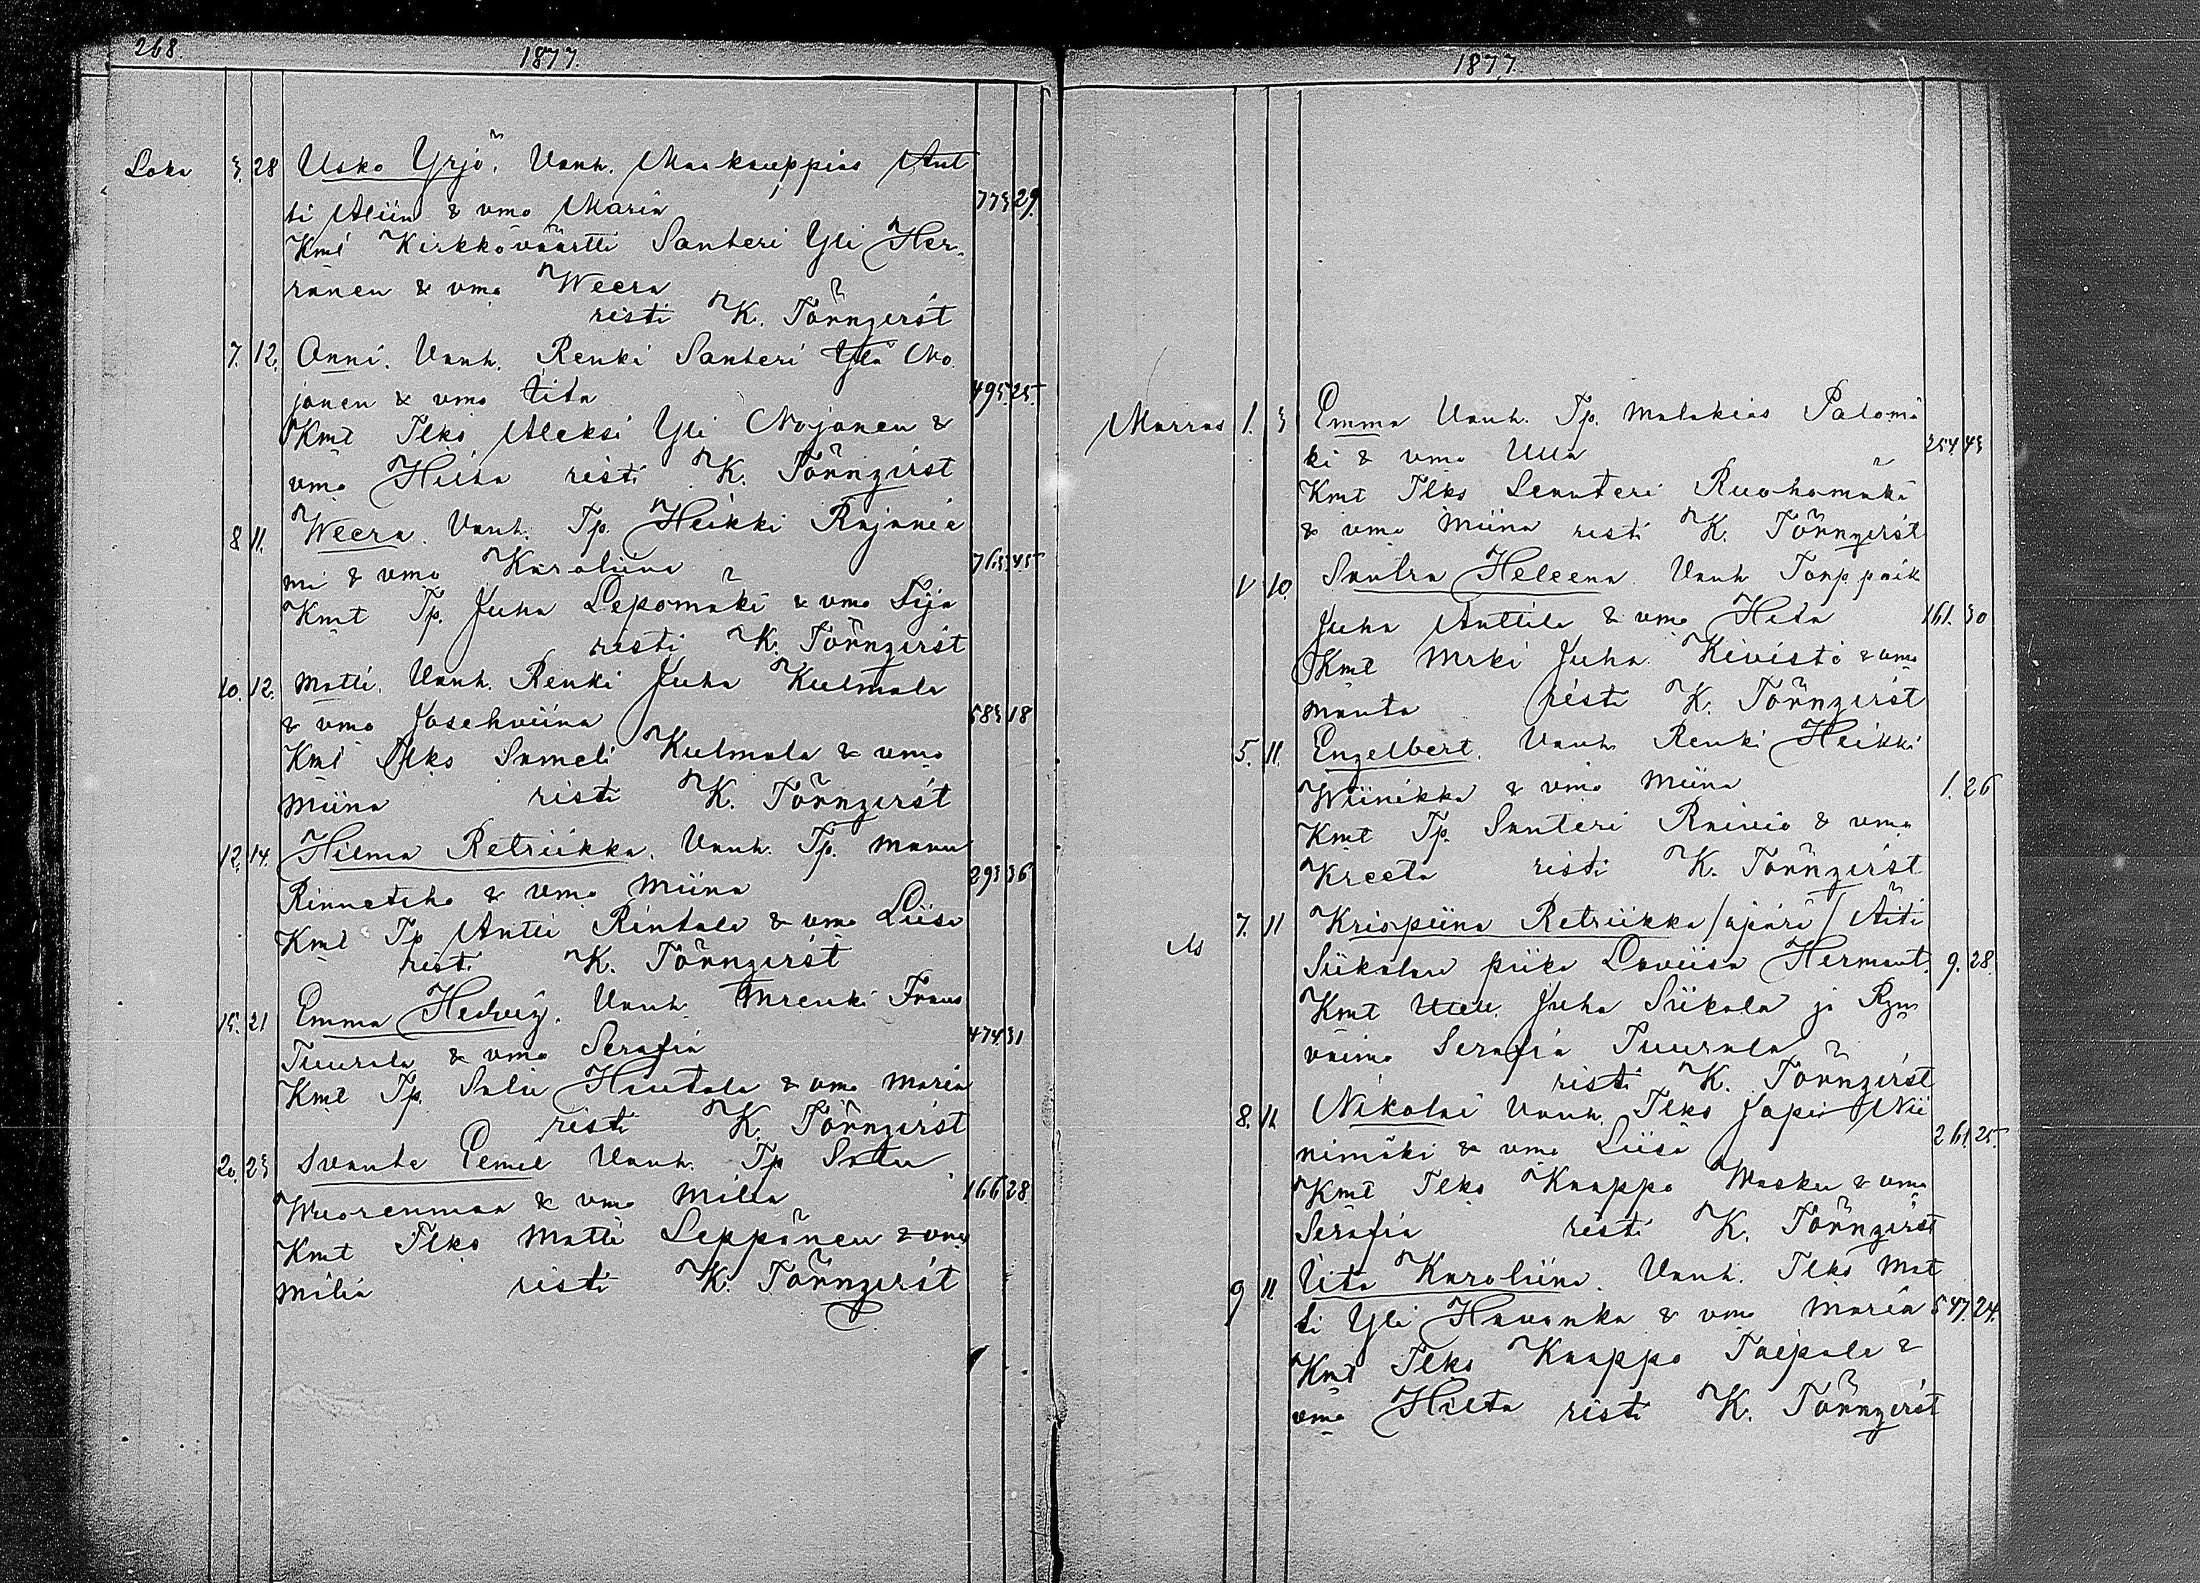 268.
1877.
Loka 3. 28 Usko Yrjö. Vanh. Maakauppias Ant
ti Aliin & vmo Maria 773 29.
Kmt Kirkkoväärtti Santeri Yli Her-
ranen & vmo Weera
risti K. Törnqvist
7. 12. Onni. Vanh. Renki Santeri Ylä No
jonen & vmo Iita 495. 25.
Kmt Tlks Aleksi Yli Nojonen &
vmo Hilta risti K. Törnqvist
8 11. Weera. Vanh. Tp. Heikki Rajanie
mi & vmo Karoliina 763 45
Kmt Tp. Juha Lepomäki & vmo Fija
risti K. Törnqvist
10. 12. Matti. Vanh. Renki Juha Kulmala
& vmo Josehviina 583 18
Kmt Tlks Sameli Kulmala & vmo
Miina risti K. Törnqvist
12. 14. Hilma Retriikka. Vanh. Tp. Manu
Rinnetsho & vmo Miina 293 36
Kmt Tp Antti Rintala & vmo Liisa
risti K. Törnqvist
15. 21 Emma Hedvig. Vanh. Mrenki Frans
Tuurala & vmo Serafia 474. 31
Kmt Tp. Salu Hautala & vmo Maria
risti K. Törnqvist
20. 23 Svante Eemel Vanh. Tp Salu
Wuorenmaa & vmo Milia 166 28.
Kmt Tlks Matti Leppänen & vmo
Milia risti K. Törnqvist
1877.
Marras 1. 3 Emma Vanh. Tp. Malakias Palomä
ki & vmo Ulla 254 43
Kmt Tlks Santeri Ruohomäki
& vmo Miina risti K. Törnqvist
1 10. Santra Heleena. Vanh Torppari
Juha Anttila & vmo Heta 161. 30
Kmt Mrki Juha Kivistö & vmo
Manta risti K. Törnqvist
5. 11. Engelbert. Vanh Renki Heikki
Wiinikka & vmo Miina 1. 26
Kmt Tp. Santeri Raivio & vmo
Kreeta risti K. Törnqvist
7. 11 Krispiina Retriikka /äpärä/ Äiti
Siikalan piika Loviisa Hermant. 9. 28.
Kmt Juha Siikala ja
vaimo Serafia Tuurala
risti K. Törnqvist
8. 11. Nikolai Vanh. Tlks Japi Nii
nimäki & vmo Liisa 261. 25.
Kmt Tlks Kaappo Wasku & vmo
Serafia risti K. Törnqvist
9 11. Iita Karoliina. Vanh. Tlks Mat
ti Yli Havunka & vmo Maria 547. 24.
Kmt Tlks Kaappo Taipale &
vmo Hilta risti K. Törnqvist